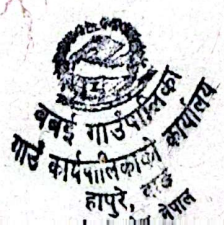 बबई गाउँपालिका
गाउँ कार्यपालिकाको कार्यालय
हापुरे, दाङ
नेपाल